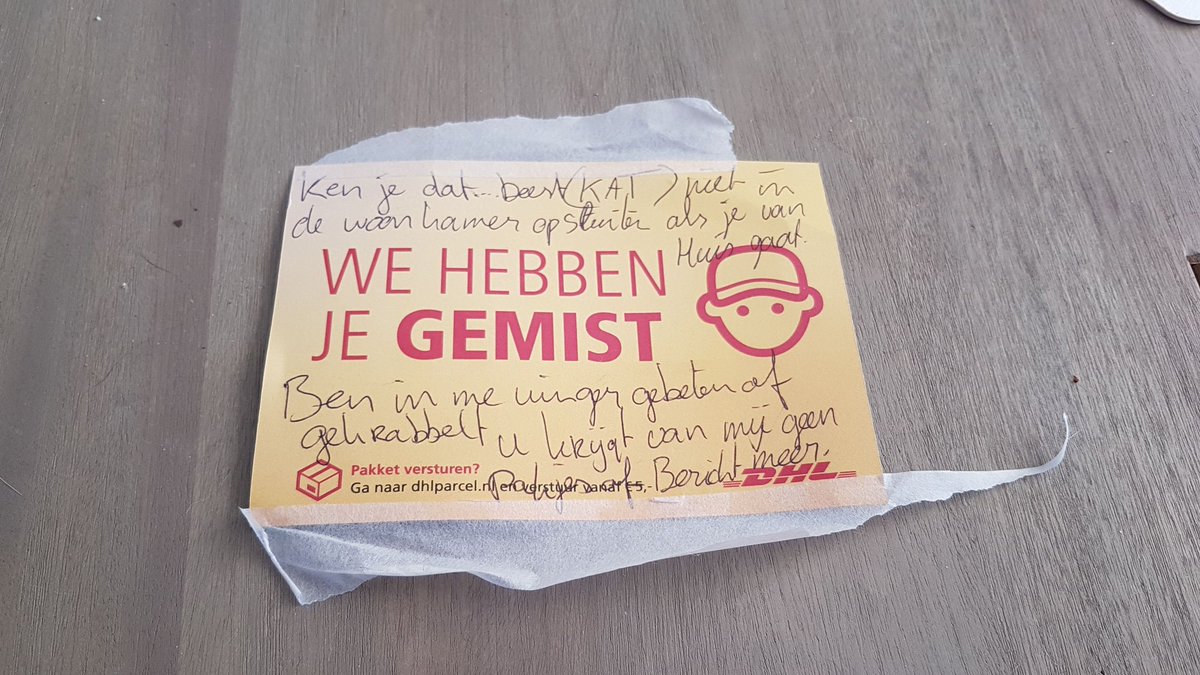 Ken je dat... beest (KAT) niet in
de woonkamer opsluiten als je van
Huis gaat.
WE HEBBEN
JE GEMIST
Ben in me vinger gebeten of
gekrabbelt u krijgt van mij geen
of Bericht meer.
Pakket versturen?
Ga naar dhlparcel.nl en verstuur vanaf €5,-
DHL